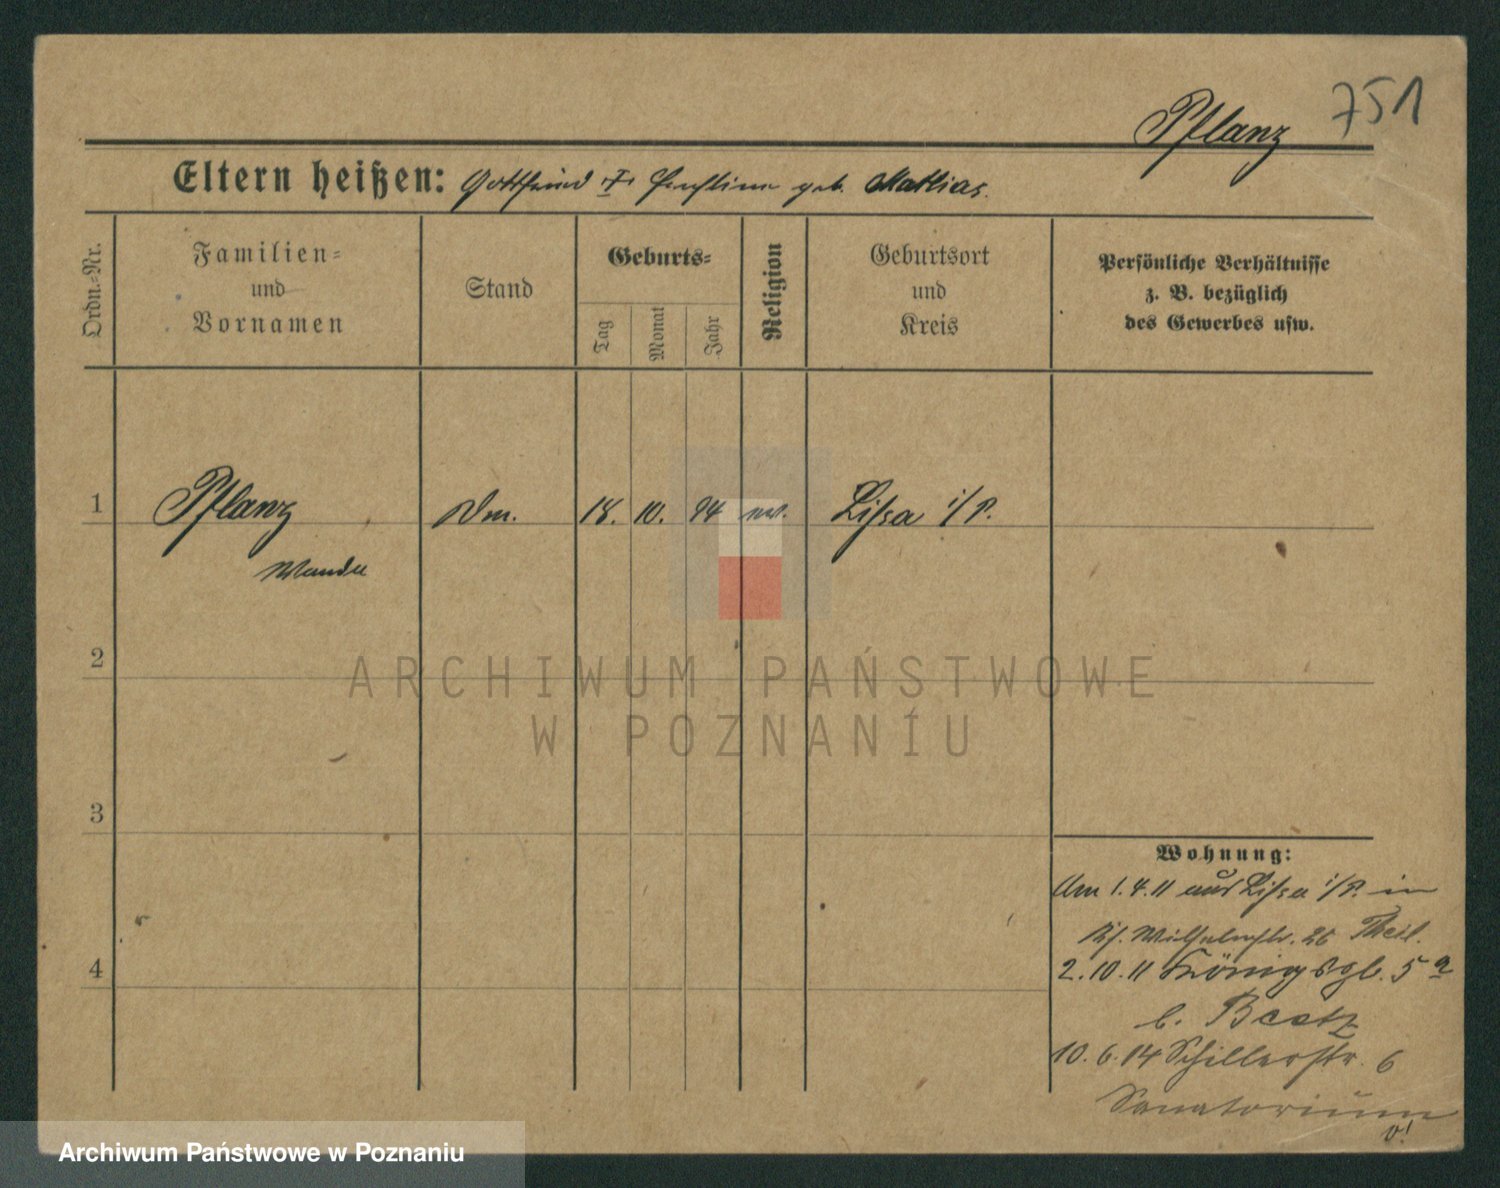 751
Pflanz
Eltern heißen: Gottfried geb. Mathias.
Ordn.-Nr.
Familien-
und
Vornamen
Stand
Geburts-
Tag
Monat
Jahr
Religion
Geburtsort
und
Kreis
Persönliche Verhältnisse
z. B. bezüglich
des Gewerbes usw.
1 Pflanz 18. 10. 94 ev. Lissa i/P.
Wanda
2
3
4
Wohnung:
Am 1.4.11 aus Lissa i/P. in
Wilhelmstr. 26 Theil.
2.10.11 Königspl. 5a
b. Beatz
10.6.14 Schillerstr. 6
Sanatorium
ARCHIWUM PAŃSTWOWE
W POZNANIU
Archiwum Państwowe w Poznaniu